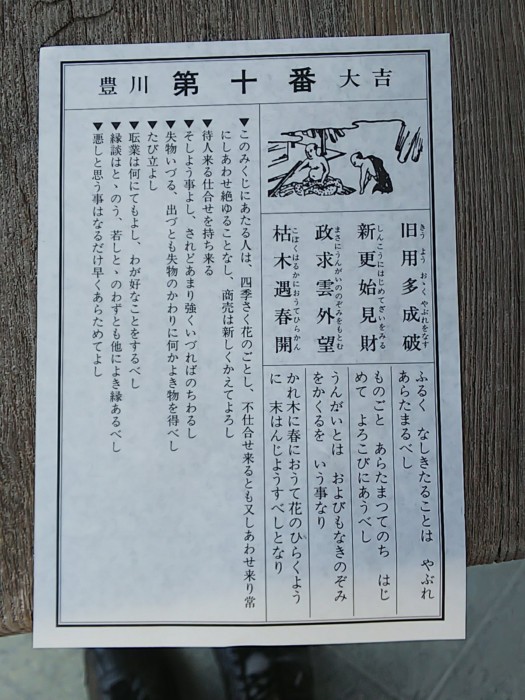 豊川 第十番 大吉
旧用多成破
きう よう おゝく やぶれをなす
新更始見財
しんこうにはじめてざいをみる
政求雲外望
まさにうんがいののぞみをもとむ
枯木遇春開
こぼくはるかにおうてひらかん
ふるく なしきたることは やぶれ
あらたまるべし
ものごと あらたまつてのち はじ
めて よろこびにあうべし
うんがいとは およびもなきのぞみ
をかくるを いう事なり
かれ木に春におうて花のひらくよう
に 末はんじようすべしとなり
▼このみくじにあたる人は、四季さく花のごとし、不仕合せ来るとも又しあわせ来り常
にしあわせ絶ゆることなし、商売は新しくかえてよろし
▼待人来る仕合せを持ち来る
▼そしよう事よし、されどあまり強くいづればのちわるし
▼失物いづる、出づとも失物のかわりに何かよき物を得べし
▼たび立よし
▼耺業は何にてもよし、わが好なことをするべし
▼縁談はとゝのう、若しとゝのわずとも他によき縁あるべし
▼悪しと思う事はなるだけ早くあらためてよし